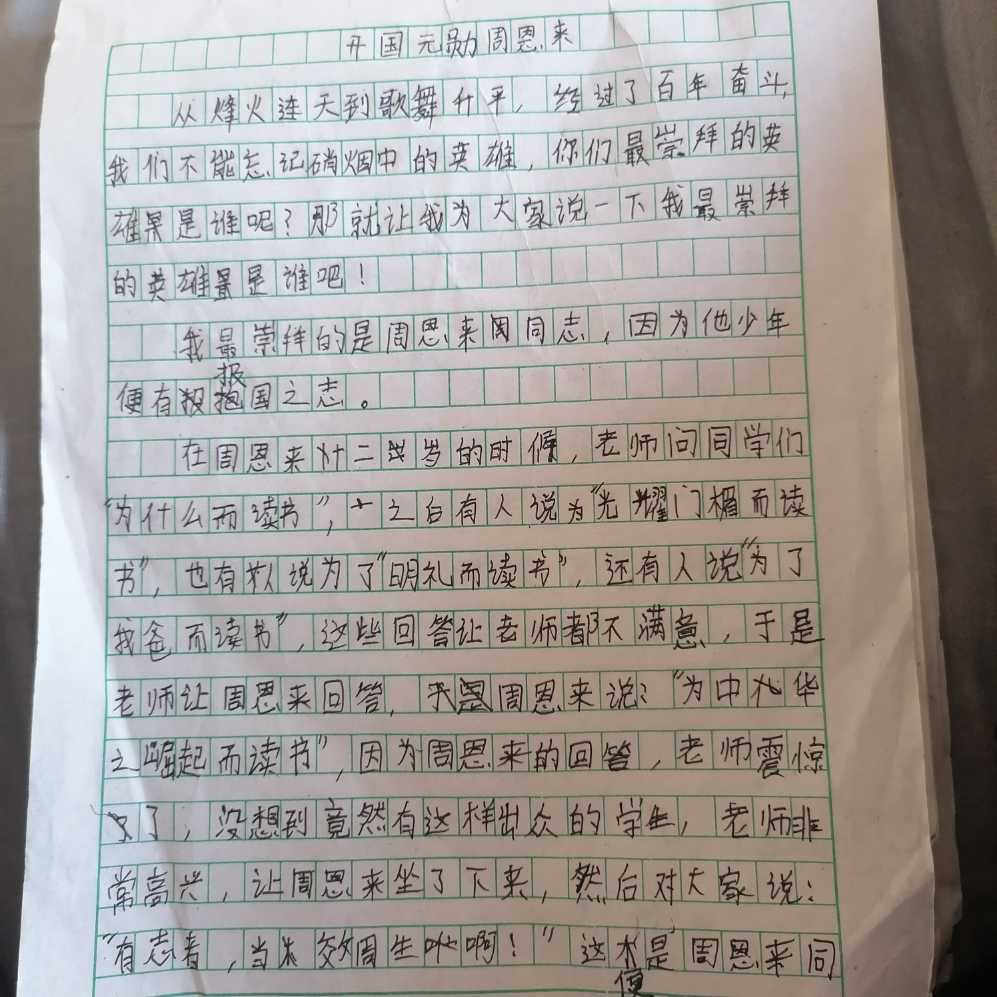 开国元勋周恩来
从烽火连天到歌舞升平，经过了百年奋斗，
我们不能忘记硝烟中的英雄，你们最崇拜的英
雄是谁呢？那就让我为大家说一下我最崇拜
的英雄是谁吧！
我最崇拜的是周恩来同志，因为他少年
便有报国之志。
在周恩来十二岁的时候，老师问同学们
“为什么而读书”，之后有人说为“光耀门楣而读
书”，也有人说为了“明礼而读书”，还有人说“为了
我爸而读书”，这些回答让老师都不满意，于是
老师让周恩来回答，周恩来说：“为中华
之崛起而读书”，因为周恩来的回答，老师震惊
了，没想到竟然有这样出众的学生，老师非
常高兴，让周恩来坐了下来，然后对大家说：
“有志者，当效周生啊！”这便是周恩来同